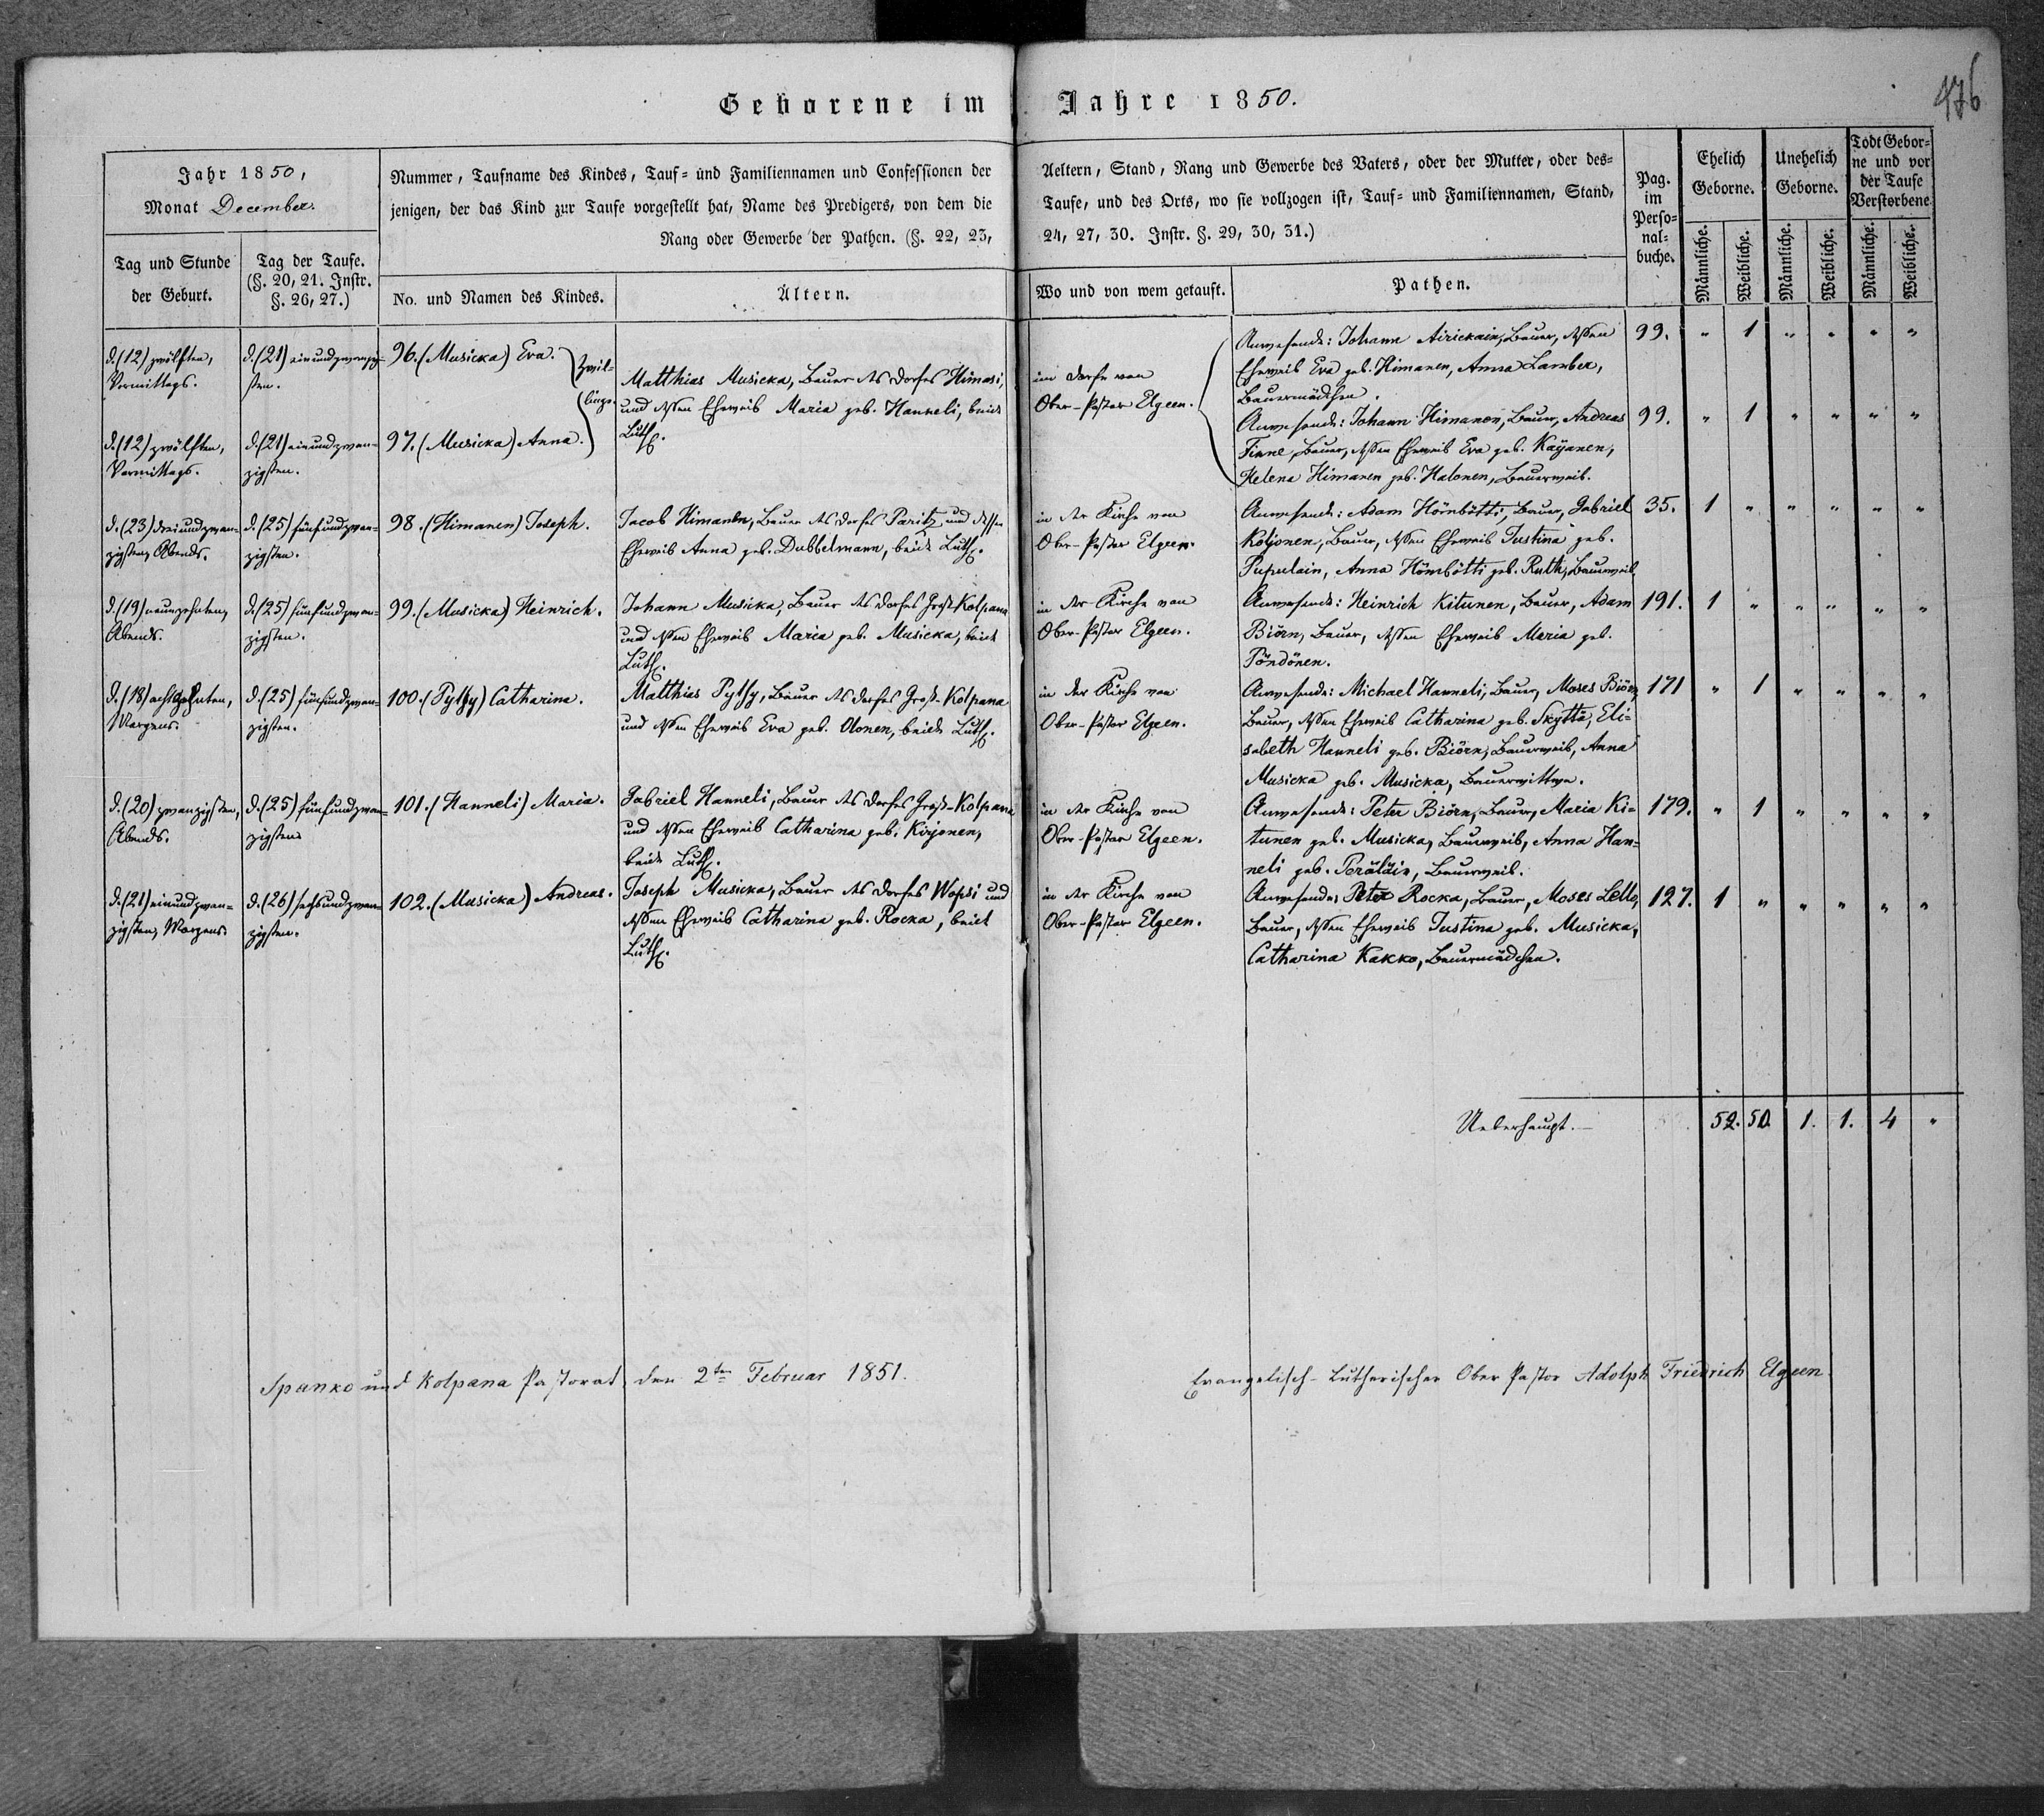 Geborene im Jahre 1850.
476
Jahr 1850,
Monat December.
Nummer, Taufname des Kindes, Tauf- und Familiennamen und Confessionen der
jenigen, der das Kind zur Taufe vorgestellt hat, Name des Predigers, von dem die
Rang oder Gewerbe der Pathen. (§. 22, 23,
Aeltern, Stand, Rang und Gewerbe des Vaters, oder der Mutter, oder des-
Taufe, und des Orts, wo sie vollzogen ist, Tauf- und Familiennamen, Stand,
24, 27, 30. Instr. §. 29, 30, 31.)
Pag.
im
Perso-
nal-
buche.
Ehelich
Geborne.
Unehelich
Geborne.
Todt Gebor-
ne und vor
der Taufe
Verstorbene
Tag und Stunde
der Geburt.
Tag der Taufe.
(§. 20, 21. Instr.
§. 26, 27.)
No. und Namen des Kindes.
Ältern.
Wo und von wem getauft.
Pathen.
Männliche.
Weibliche.
Männliche.
Weibliche.
Männliche.
Weibliche.
d. (12) zwölften,
Vormittags.
d. (21) einundzwanzig-
sten.
96. (Musicka) Eva.
Zwil-
linge.
Matthias Musicka, Bauer des Dorfes Himasi,
und dessen Eheweib Maria geb. Hanneli, beide
Luth.
im Dorfe von
Ober-Pastor Elgeen.
Anwesende: Johann Airickain, Bauer, dessen
Eheweib Eva geb. Himanen, Anna Lamber,
Bauermädchen.
99. " 1 " " " "
d. (12) zwölften,
Vormittags.
d. (21) einundzwan-
zigsten.
97. (Musicka) Anna.
Anwesende: Johann Himanen, Bauer, Andreas
Finne, Bauer, dessen Eheweib Eva geb. Käÿanen,
Helena Himanen geb. Halonen, Bauerweib.
99. " 1 " " " "
d. (23) dreiundzwan-
zigsten, Abends.
d. (25) fünfundzwan-
zigsten.
98. (Himanen) Joseph.
Jacob Himanen, Bauer des Dorfes Paritz und dessen
Eheweib Anna geb. Dubbelmann, beide Luth.
in der Kirche von
Ober-Pastor Elgeen.
Anwesende: Adam Hörnbötti, Bauer, Gabriel
Koljonen, Bauer, dessen Eheweib Justina geb.
Pupulain, Anna Hörnbötti geb. Ruth, Bauerweib.
35. 1 " " " " "
d. (19) neunzehnten,
Abends.
d. (25) fünfundzwan-
zigsten.
99. (Musicka) Heinrich.
Johann Musicka, Bauer des Dorfes Groß-Kolpana
und dessen Eheweib Maria geb. Musicka, beide
Luth.
in der Kirche von
Ober-Pastor Elgeen.
Anwesende: Heinrich Kitunen, Bauer, Adam
Biörn, Bauer, dessen Eheweib Maria geb.
Pöndönen.
191. 1 " " " " "
d. (18) achtzehnten,
Morgens.
d. (25) fünfundzwan-
zigsten.
100. (Pythy) Catharina.
Matthias Pythy, Bauer des Dorfes Groß-Kolpana
und dessen Eheweib Eva geb. Olonen, beide Luth.
in der Kirche von
Ober-Pastor Elgeen.
Anwesende: Michael Hanneli, Bauer, Moses Biörn,
Bauer, dessen Eheweib Catharina geb. Skyttä, Eli-
sabeth Hanneli geb. Biörn, Bauerweib, Anna
Musicka geb. Musicka, Bauerwittwe.
171 " 1 " " " "
d. (20) zwanzigsten,
Abends.
d. (25) fünfundzwan-
zigsten
101. (Hanneli) Maria.
Gabriel Hanneli, Bauer des Dorfes Groß-Kolpana
und dessen Eheweib Catharina geb. Kirjonen,
beide Luth.
in der Kirche von
Ober-Pastor Elgeen.
Anwesende: Peter Biörn, Bauer, Maria Ki-
tunen geb. Musicka, Bauerweib, Anna Han-
neli geb. Peräläin, Bauerweib.
179. " 1 " " " "
d. (21) einundzwan-
zigsten, Morgens.
d. (26) sechsundzwan-
zigsten.
102. (Musicka) Andreas.
Joseph Musicka, Bauer des Dorfes Wopsi und
dessen Eheweib Catharina geb. Rocka, beide
Luth.
in der Kirche von
Ober-Pastor Elgeen.
Anwesende: Peter Rocka, Bauer, Moses Lello,
Bauer, dessen Eheweib Justina geb. Musicka,
Catharina Kakko, Bauermädchen.
127. 1 " " " " "
Ueberhaupt. 52. 50 1. 1. 4 "
Spanko und Kolpana Pastorat, den 2ten Februar 1851.
Evangelisch-Lutherischer Ober Pastor Adolph Friedrich Elgeen.